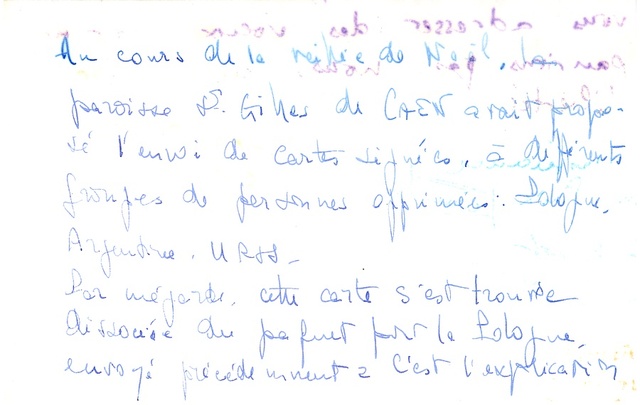 Au cours de la veillée de Noël, la
paroisse St. Gilles de CAEN avait propo-
sé l'envoi de cartes signées, à différents
groupes de personnes opprimées: Pologne,
Argentine, URSS_
Par mégarde, cette carte s'est trouvée
dissociée du paquet pour la Pologne,
envoyé précédemment = C'est l'explication